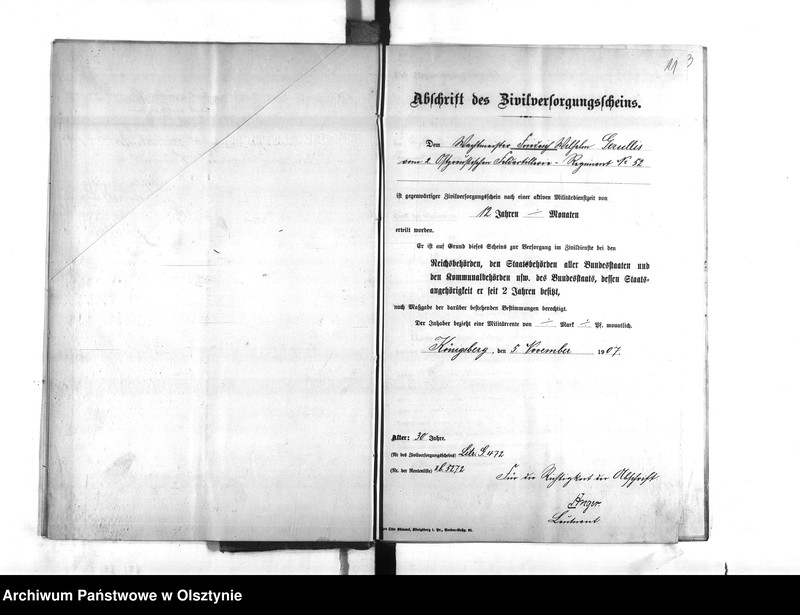 11 3
Abschrift des Zivilversorgungsscheins.
Dem Wachtmeister Friedrich Wilhelm Gerullis
vom 2. Ostpreußischen Feldartillerie-Regiment No 52
ist gegenwärtiger Zivilversorgungsschein nach einer aktiven Militärdienstzeit von
12 Jahren ÷ Monaten
erteilt worden.
Er ist auf Grund dieses Scheins zur Versorgung im Zivildienste bei den
Reichsbehörden, den Staatsbehörden aller Bundesstaaten und
den Kommunalbehörden usw. des Bundesstaats, dessen Staats-
angehörigkeit er seit 2 Jahren besitzt,
nach Maßgabe der darüber bestehenden Bestimmungen berechtigt.
Der Inhaber bezieht eine Militärrente von ÷ Mark ÷ Pf. monatlich.
Königsberg, den 5 November 1907.
Alter: 30 Jahre.
(Nr des Zivilversorgungsscheins) G 472
(Nr. der Rentenliste) 5272
Für die Richtigkeit der Abschrift
Leutnant
Königsberg i. Pr.,
Archiwum Państwowe w Olsztynie